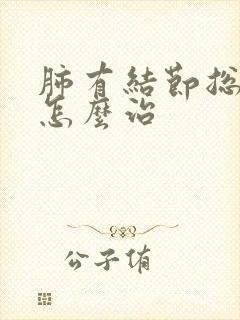 肺有結節
怎麼治
公子侑